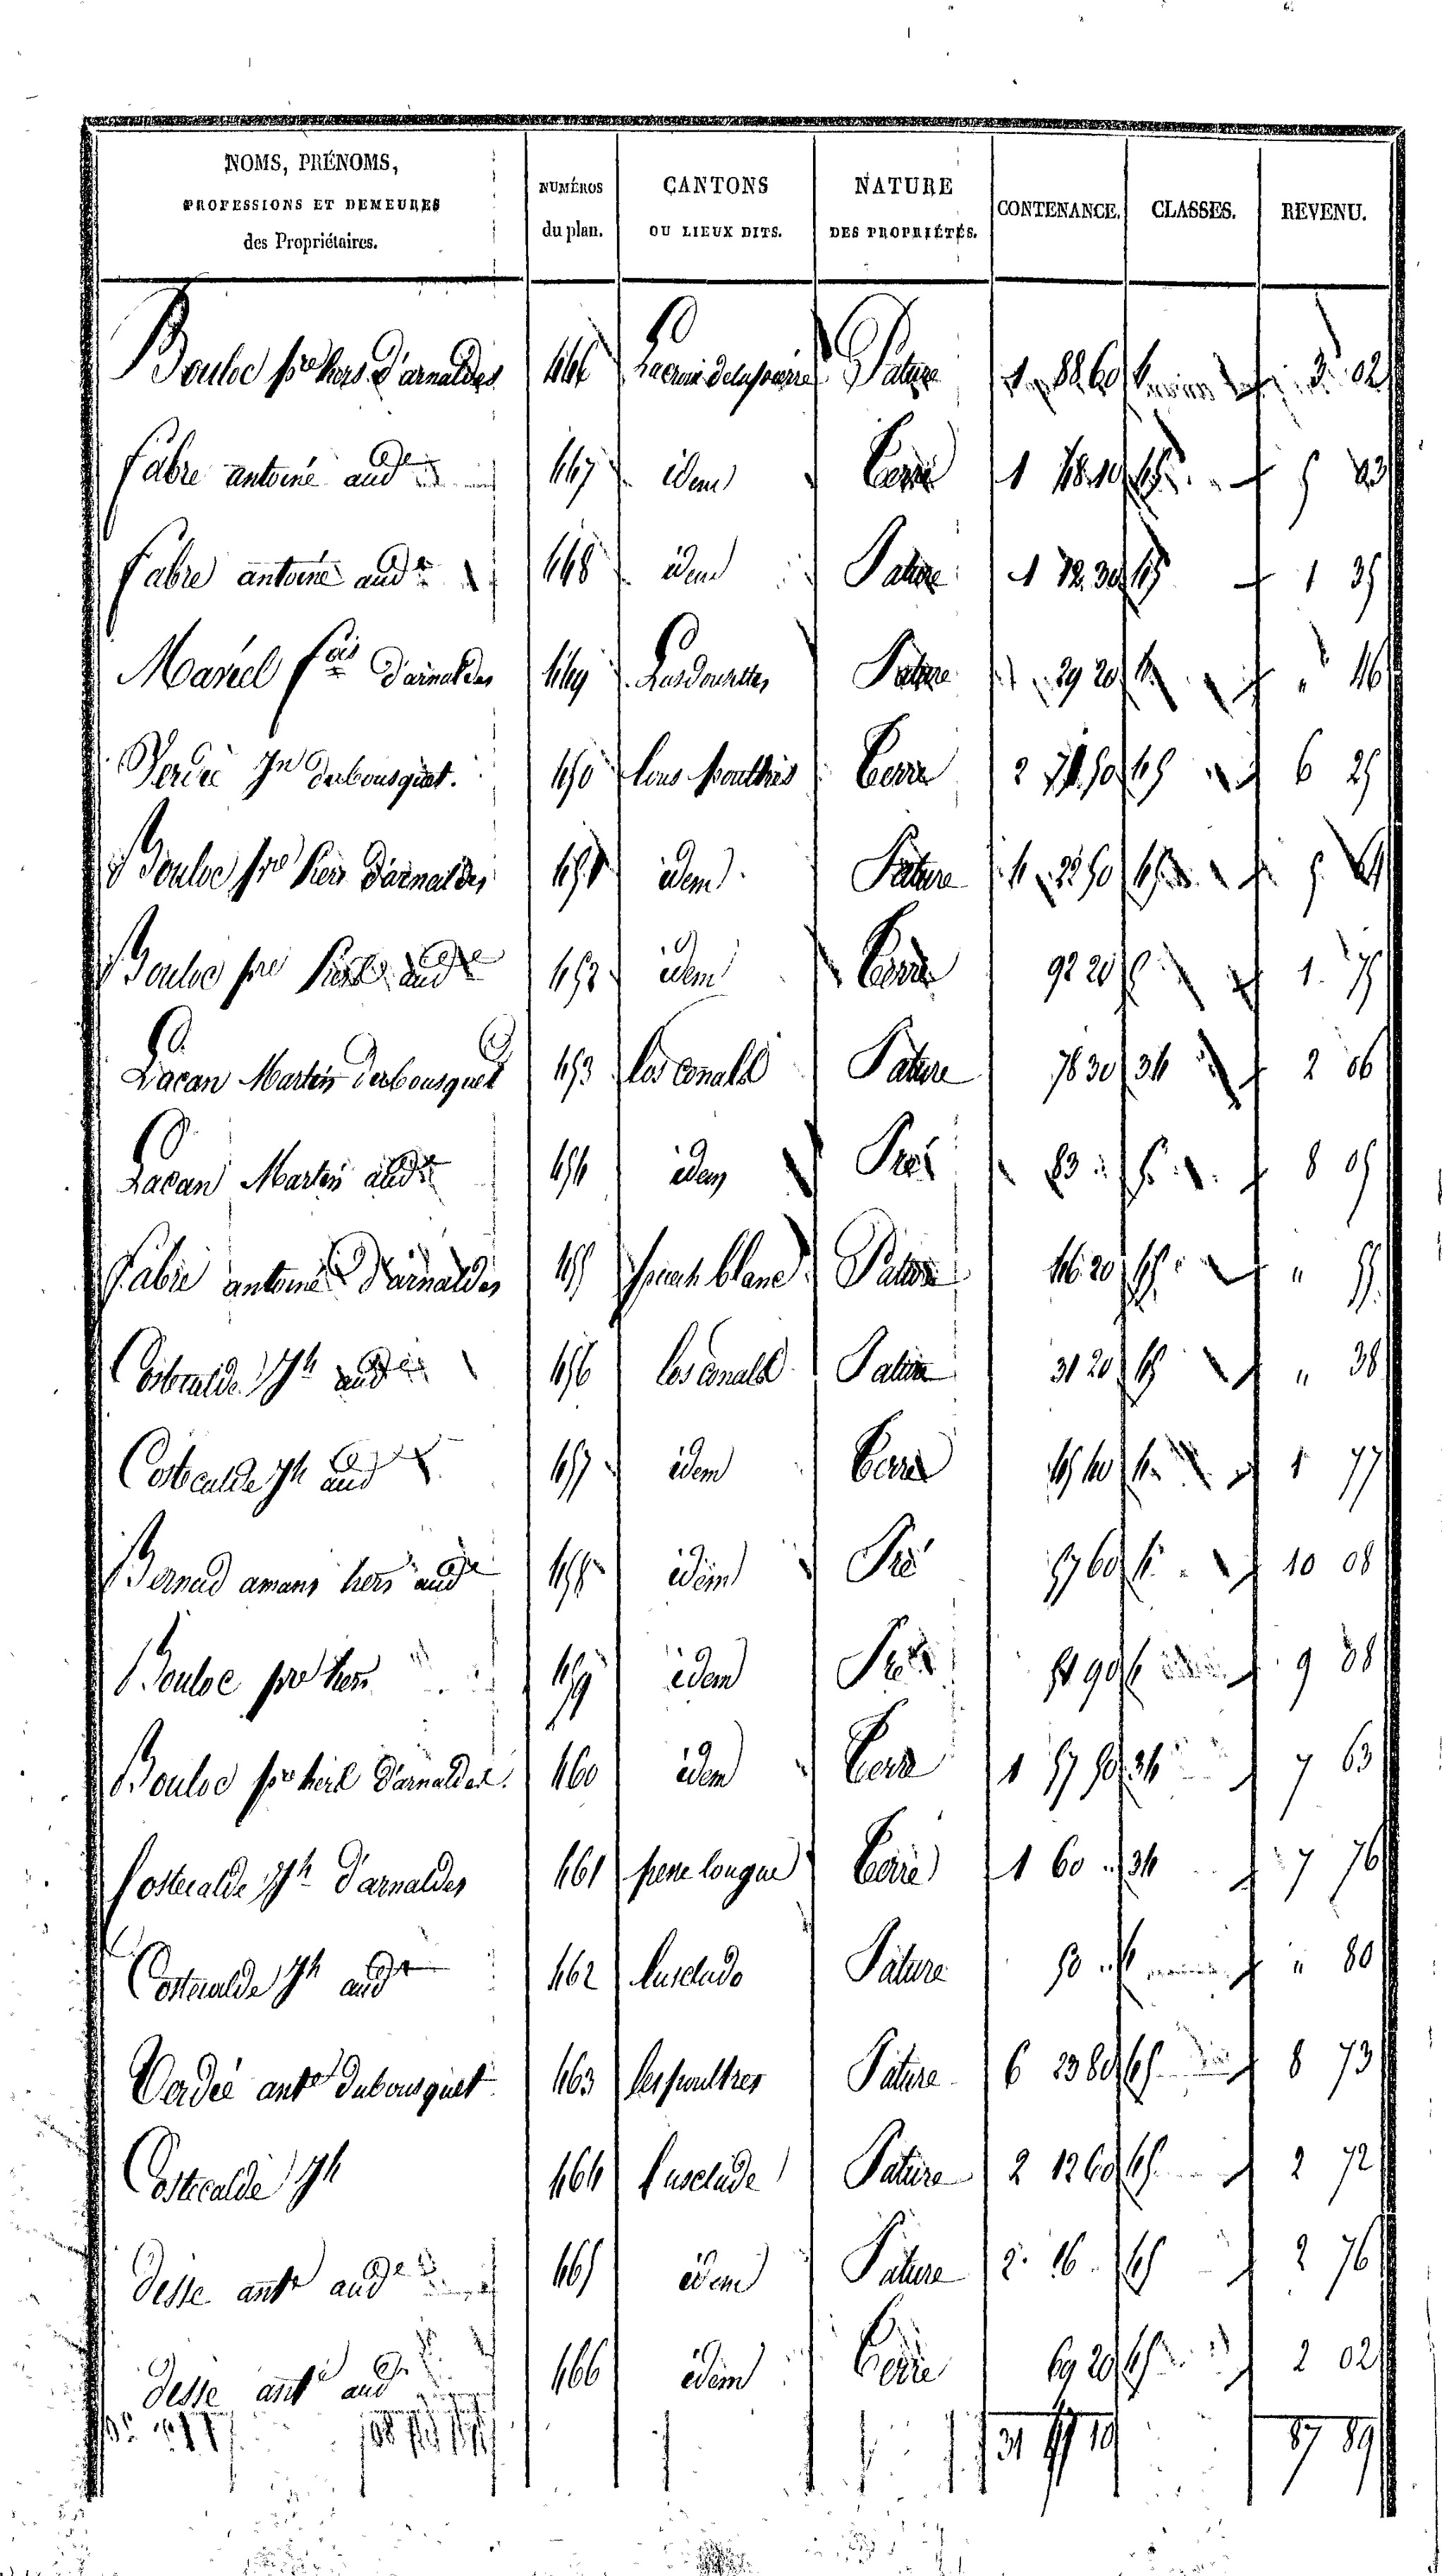 NOMS, PRÉNOMS, PROFESSIONS ET DEMEURES des Propriétaires. NUMÉROS du plan. CANTONS OU LIEUX DITS. NATURE DES PROPRIÉTÉS. CONTENANCE. CLASSES. REVENU.
Bouloc pre hers d'arnaldes 446 Lacroix delapeirre Pature 1 88 60 4 3 02
Fabre antoine aud 447 idem Terre 1 78 10 45 5 23
Fabre antoine aud 448 idem Pature 1 12 30 45 1 35
Marcel fois d'arnaldes 449 Pature 29 20 4 " 46
Verdié Jn dubousquet. 450 lous poultres Terre 2 50 45 6 25
Bouloc pre hers d'arnaldes 451 idem Pature 4 22 50 45 5
Bouloc pre hers aud 452 idem Terre 92 20 5 1 75
Lacan Martin dubousquet 453 los Pature 78 30 34 2 06
Lacan Martin aud 454 idem Pré 23 " 5 8 05
Fabre antoine d'arnaldes 455 puech blanc Pature 46 20 45 " 55
Costecalde Jh aud 456 los Pature 31 20 45 " 38
Costecalde Jh aud 457 idem Terre 45 40 4 1 77
Bernad amans hers aud 458 idem Pré 57 60 4 10 08
Bouloc pre hers 459 idem Pré 51 90 4 9 08
Bouloc pre hers d'arnaldes. 460 idem Terre 1 57 50 34 7 63
Costecalde Jh d'arnaldes 461 pene longue Terre 1 60 " 34 7 76
Costecalde Jh aud 462 lusclade Pature 50 " 4 " 80
Verdié ante dubousquet 463 les poultres Pature 6 23 80 45 8 73
Costecalde Jh 464 lusclade Pature 2 12 60 45 2 72
desse ante aud 465 idem Pature 2 16 45 2 76
desse ante aud 466 idem Terre 69 20 45 2 02
31 10 87 89